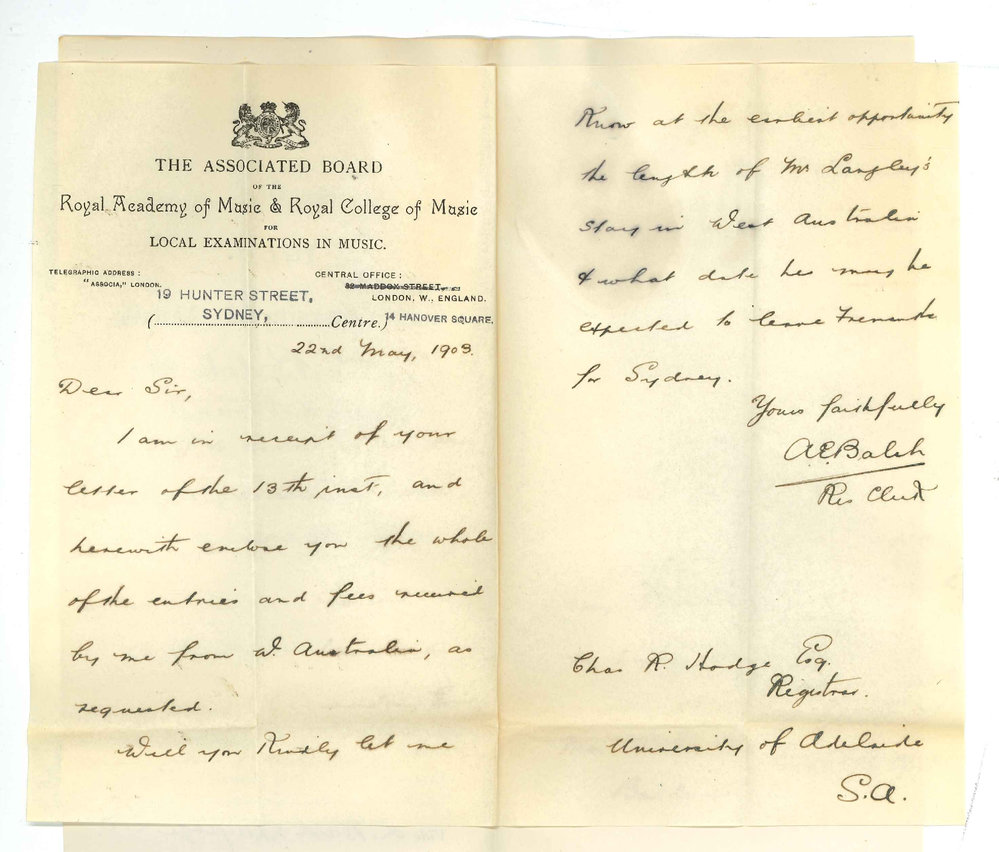 THE ASSOCIATED BOARD
OF THE
Royal Academy of Music & Royal College of Music
FOR
LOCAL EXAMINATIONS IN MUSIC.
TELEGRAPHIC ADDRESS:
"ASSOCIA," LONDON.
CENTRAL OFFICE:
32 MADDOX STREET,
LONDON. W., ENGLAND.
14 HANOVER SQUARE.
19 HUNTER STREET,
SYDNEY,
(.......................................Centre.)
22nd May, 1903.
Dear Sir,
I am in receipt of your
letter of the 13th inst, and
herewith enclose you the whole
of the entries and fees received
by me from W. Australia, as
requested.
Will you Kindly let me
Know at the earliest opportunity
the length of Mr Langley's
stay in West Australia
& what date he may be
expected to leave Fremantle
for Sydney.
Yours faithfully
A.E. Balch
Res Clerk
Chas R. Hodge Esq.
Registrar.
University of Adelaide
S.A.